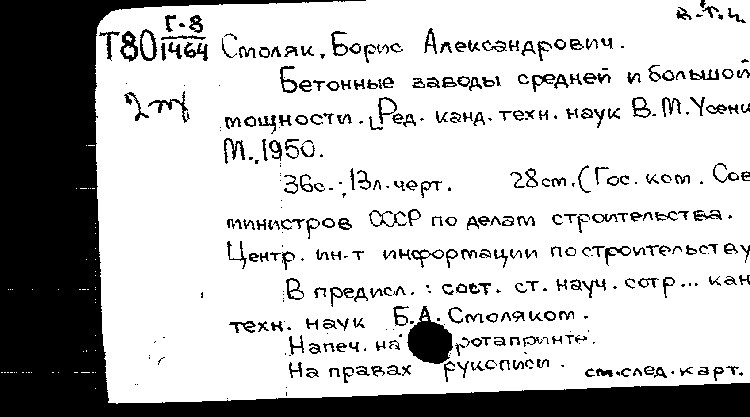 в.т.ч.
Т80 Г-8/1464 Смоляк, Борис Александрович.
Бетонные заводы средней и большой
2 т
мощности. [Ред. канд. техн. наук В. М. Усени
М., 1950.
36с.; 13л. черт. 28см. (Гос. ком. Сов
министров СССР по делам строительства.
Центр. ин-т информации по строительству
В предисл.: сост. ст. науч. сотр... кан
техн. наук Б.А. Смоляком.
Напеч. на ротапринте.
На правах рукописи. см. след. карт.